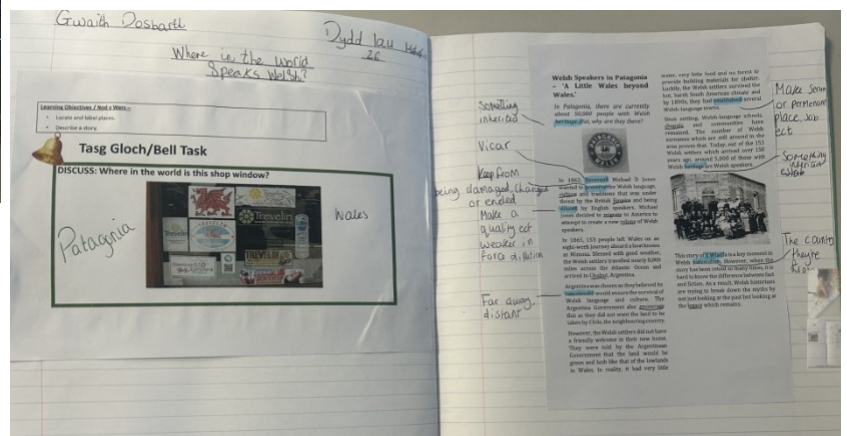 Gwaith Dosbarth
Dydd Iau
26
Where in the world
Speaks Welsh?
Learning Objectives / Nod y Wers –
• Locate and label places.
• Describe a story.
Tasg Gloch/Bell Task
DISCUSS: Where in the world is this shop window?
Patagnia
Wales
Trevelin
TREVELIN
Something
inherited
Vicar
Keep from
being damaged, changed
or ended
Make a
quality ect
weaker in
Far away
distant
Welsh Speakers in Patagonia
– 'A Little Wales beyond
Wales.'
In Patagonia, there are currently
about 50,000 people with Welsh
heritage. But, why are they there?
PATAGONIA
WALES
In 1865, Reverend Michael D Jones
wanted to preserve the Welsh language,
culture and traditions that was under
threat by the British Empire and being
diluted by English speakers. Michael
Jones decided to migrate to America to
attempt to create a new colony of Welsh
speakers.
In 1865, 153 people left Wales on an
eight-week journey aboard a boat known
as Mimosa. Blessed with good weather,
the Welsh settlers travelled nearly 8,000
miles across the Atlantic Ocean and
arrived in Chubut, Argentina.
Argentina was chosen as they believed its
would ensure the survival of
Welsh language and culture. The
Argentina Government also encourage
this as they did not want the land to be
taken by Chile, the neighbouring country.
However, the Welsh settlers did not have
a friendly welcome in their new home.
They were told by the Argentinean
Government that the land would be
green and lush like that of the lowlands
in Wales. In reality, it had very little
water, very little food and no forest to
provide building materials for shelter.
Luckily, the Welsh settlers survived the
hot, harsh South American climate and
by 1890s, they had established several
Welsh-language towns.
Since settling, Welsh-language schools,
chapels and communities have
remained. The number of Welsh
surnames which are still around in the
area proves this. Today, out of the 153
Welsh settlers which arrived over 150
years ago, around 5,000 of those with
Welsh heritage are Welsh speakers.
This story of Y Wladfa is a key moment in
Welsh nationalism. However, when the
story has been retold so many times, it is
hard to know the difference fact
and fiction. As a result, Welsh historians
are trying to break down the myths by
not just looking at the past but looking at
the legacy which remains.
Make
or permenent
place, job
ect
Something
inherited
The country
they're